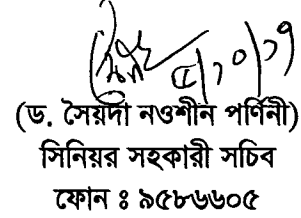 (ড. সৈয়দা নওশীন পর্ণিনী)
সিনিয়র সহকারী সচিব
ফোন ঃ ৯৫৮৬৬০৫